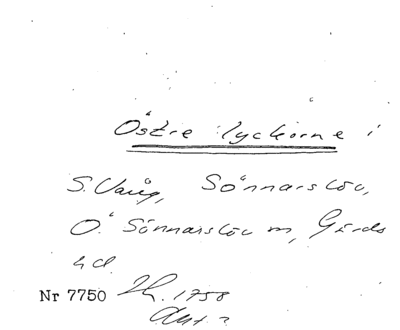 Östre lyckorne i
S. Vång, Sönnarslöv,
Ö. Sönnarslöv sn, Gärds
hd.
Nr 7750 Lh. 1758
Akt 2